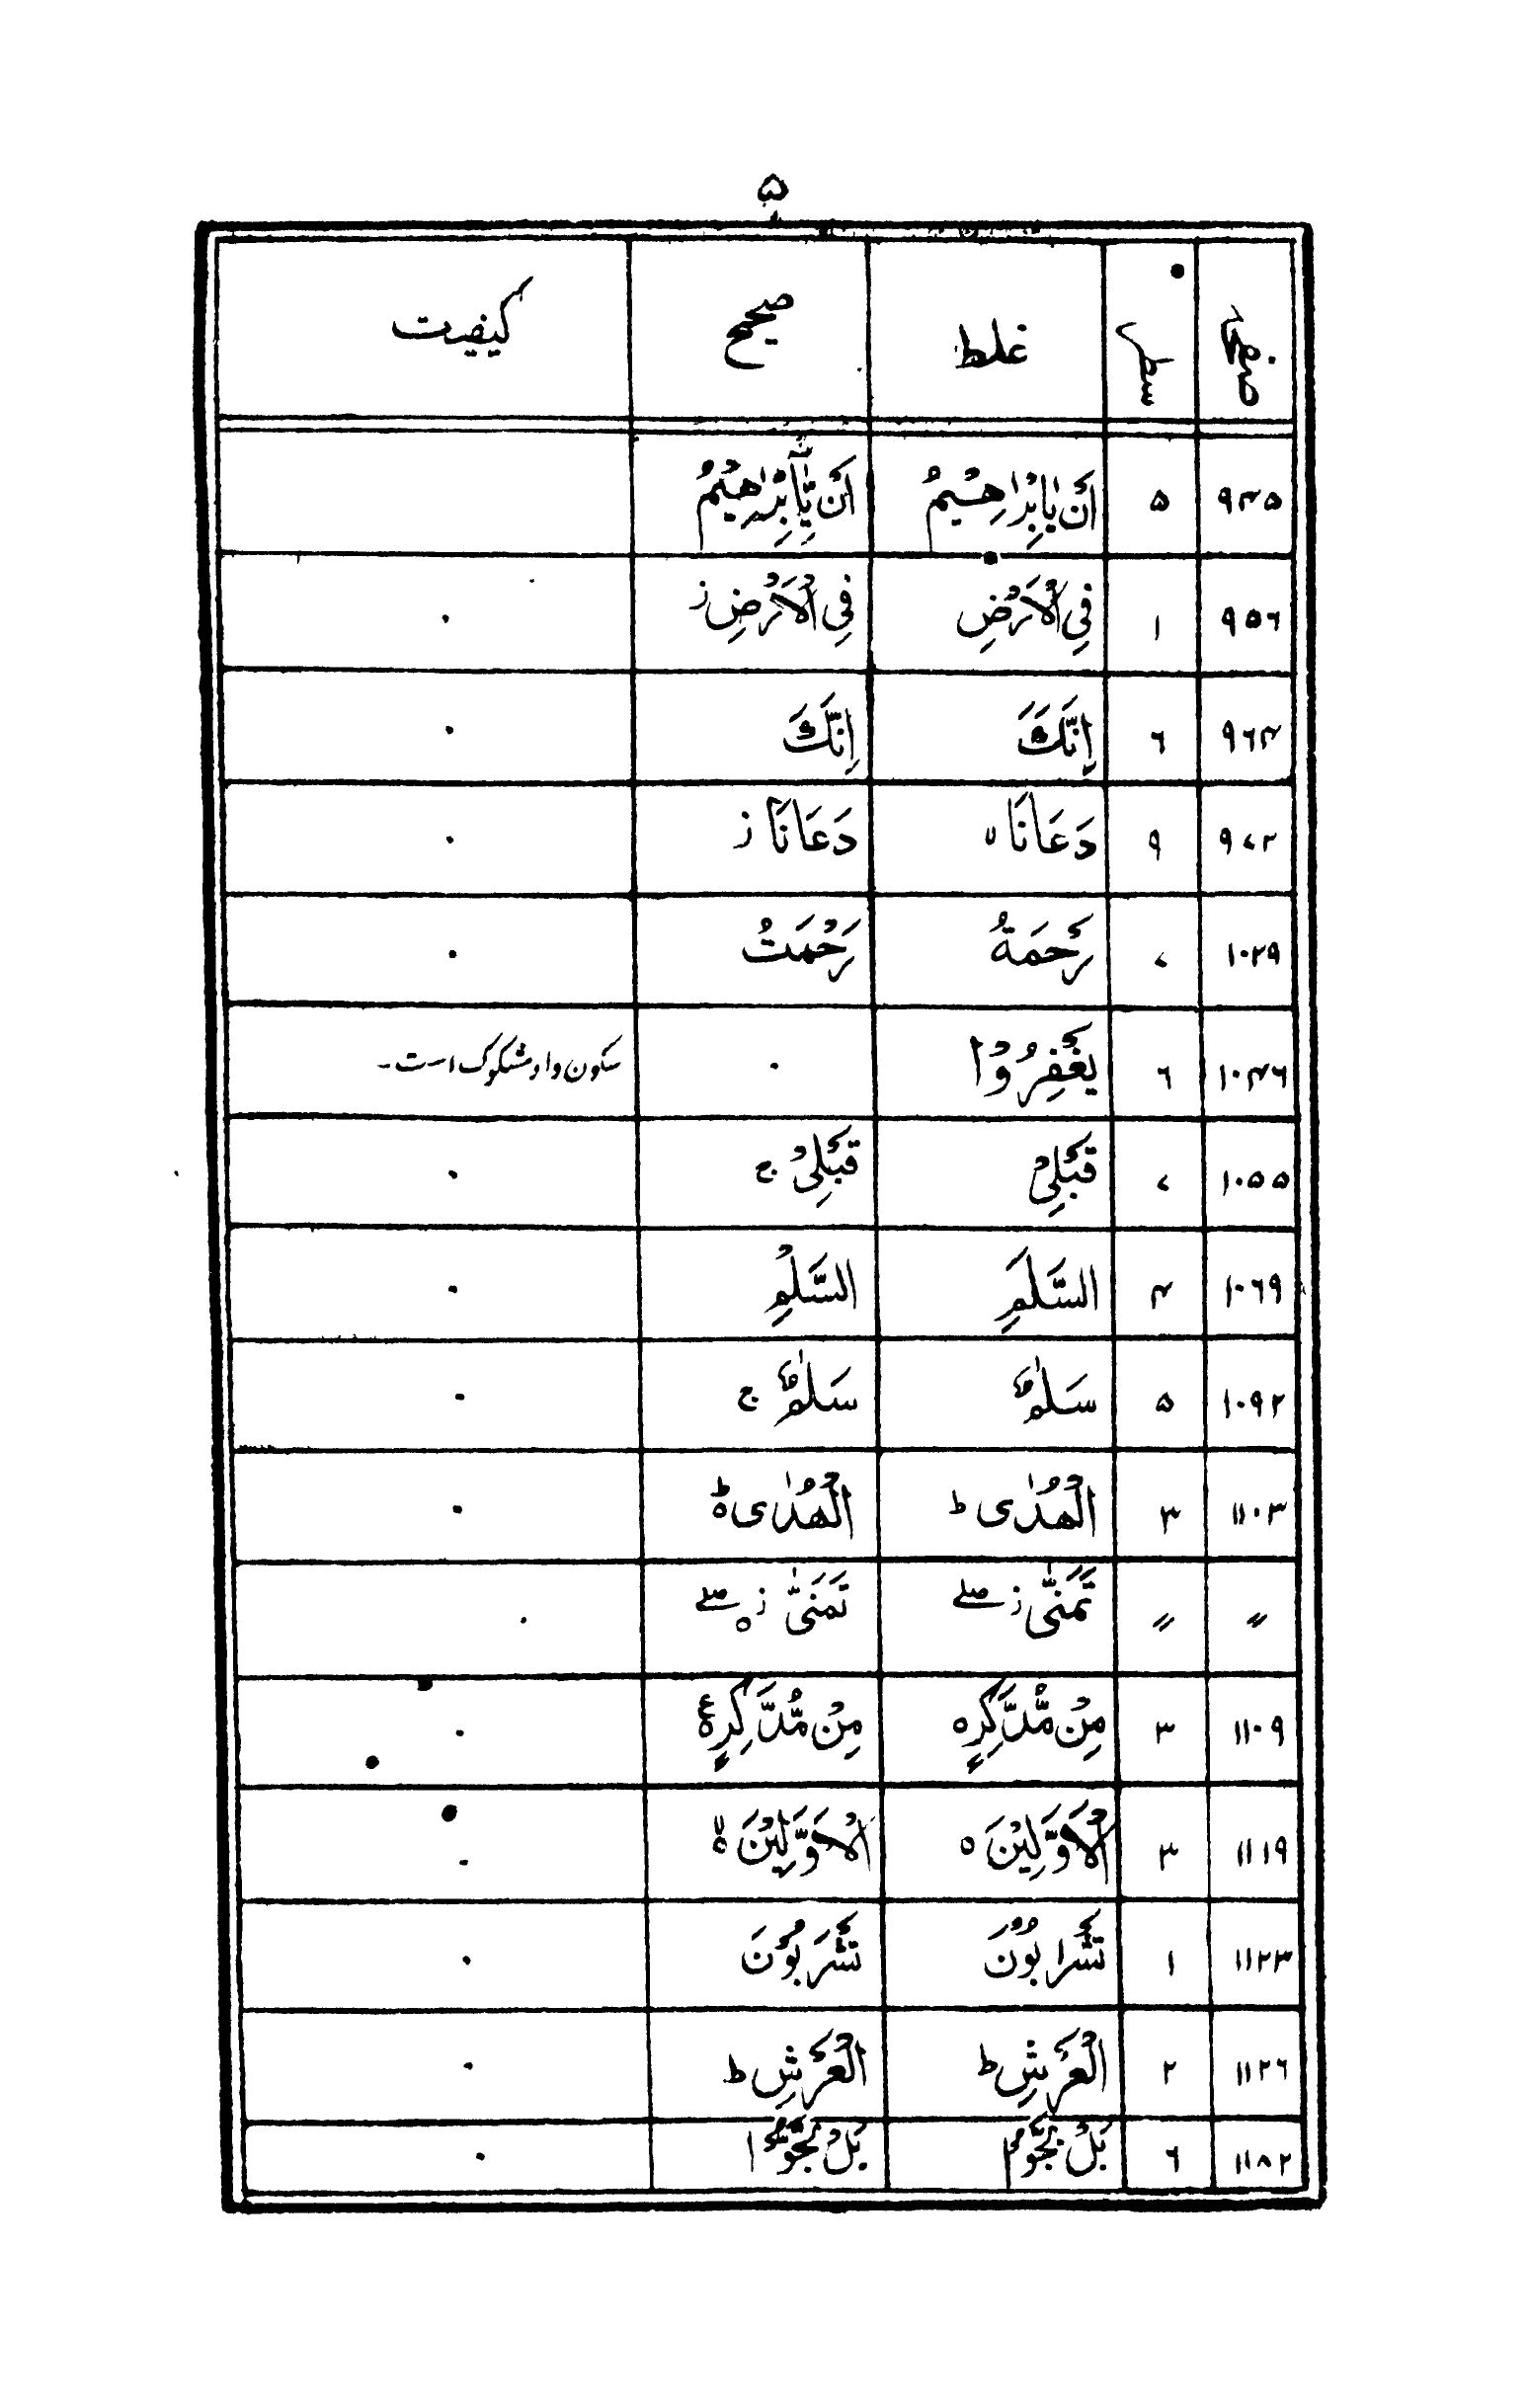 ۵
صفحہ سطر غلط صحیح کیفیت
۹۴۵ ۵ اَنْ یٰابْرٰاهِـیْمُ اَنْ یّٰۤاِبْرٰهِیْمُ
۹۵۶ ۱ فِی الْاَرْضِ فِی الْاَرْضِ ز ۰
۹۶۴ ۶ اِنَّكََ اِنَّكَ ۰
۹۷۲ ۹ دَعَانَا ۙ دَعَانَا ز ۰
۱۰۲۹ ۷ رَحْمَةُ رَحْمَتُ ۰
۱۰۴۶ ۶ یَغْفِرُوْا ۰ سکون واو مشکوک است۔
۱۰۵۵ ۷ قَبْلِیْ قَبْلِیْ ج ۰
۱۰۶۹ ۴ السَّلَمِ السَّلْمِ ۰
۱۰۹۲ ۵ سَلٰمٌ سَلٰمٌ ج ۰
۱۱۰۳ ۳ الْهُدٰی ط الْهُدٰی ؕ۵ ۰
〃 〃 تَمَنّٰی ز صلے تَمَنّٰی ز ہ صلے ۰
۱۱۰۹ ۳ مِنْ مُّدَّكِرٍ ہ مِنْ مُّدَّكِرٍ ہ ع ۰
۱۱۱۹ ۳ الْاَوَّلِیْنَ ہ الْاَوَّلِیْنَ ۙہ ۰
۱۱۲۳ ۱ تَشْرابُوْنَ تَشْرَبُوْنَ ۰
۱۱۲۶ ۲ الْعَرْشِ ط الْعَرْشِ ط ۰
۱۱۸۲ ۶ بَلْ لَّجُّوْا ۰